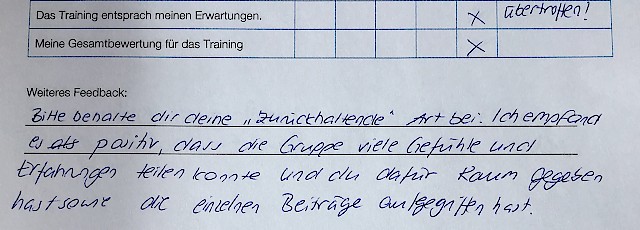 Das Training entsprach meinen Erwartungen. x übertroffen!
Meine Gesamtbewertung für das Training x
Weiteres Feedback:
Bitte behalte dir deine „zurückhaltende" Art bei. Ich empfand
es als positiv, dass die Gruppe viele Gefühle und
Erfahrungen teilen konnte und du dafür Raum gegeben
hast sowie die einzelnen Beiträge aufgegriffen hast.